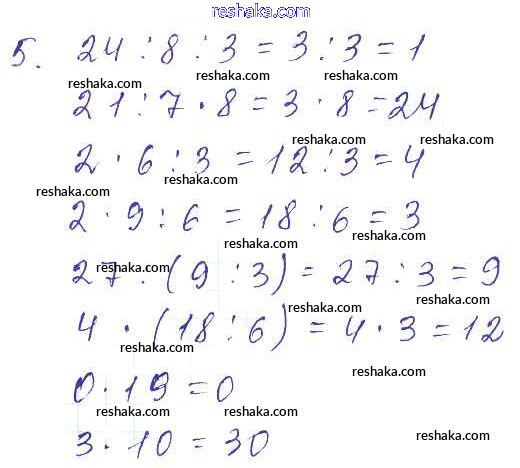 reshaka.com
5. 24 : 8 : 3 = 3 : 3 = 1
reshaka.com reshaka.com reshaka.com
21 : 7 · 8 = 3 · 8 = 24
reshaka.com reshaka.com
2 · 6 : 3 = 12 : 3 = 4
reshaka.com reshaka.com
2 · 9 : 6 = 18 : 6 = 3
reshaka.com reshaka.com
27 : (9 : 3) = 27 : 3 = 9
reshaka.com reshaka.com reshaka.com
4 · (18 : 6) = 4 · 3 = 12
reshaka.com reshaka.com
0 · 19 = 0
reshaka.com reshaka.com
3 · 10 = 30
reshaka.com reshaka.com